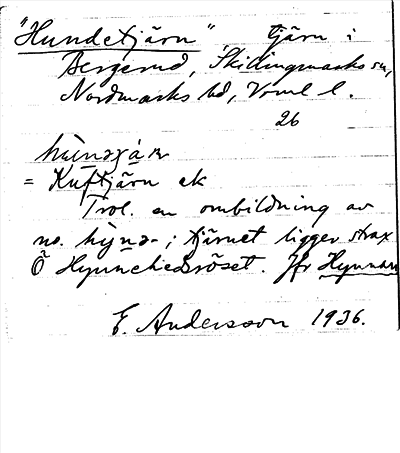 "Hundetjärn" tjärn i
Bergerud, Skillingmarks sn,
Nordmarks hd, Vrml l.
26
= Kuftjärn ek
Trol. en ombildning av
no. hỳnə- ; tjärnet ligger strax
Ö Hynnekedsröset. Jfr Hynnan
E. Andersson 1936.